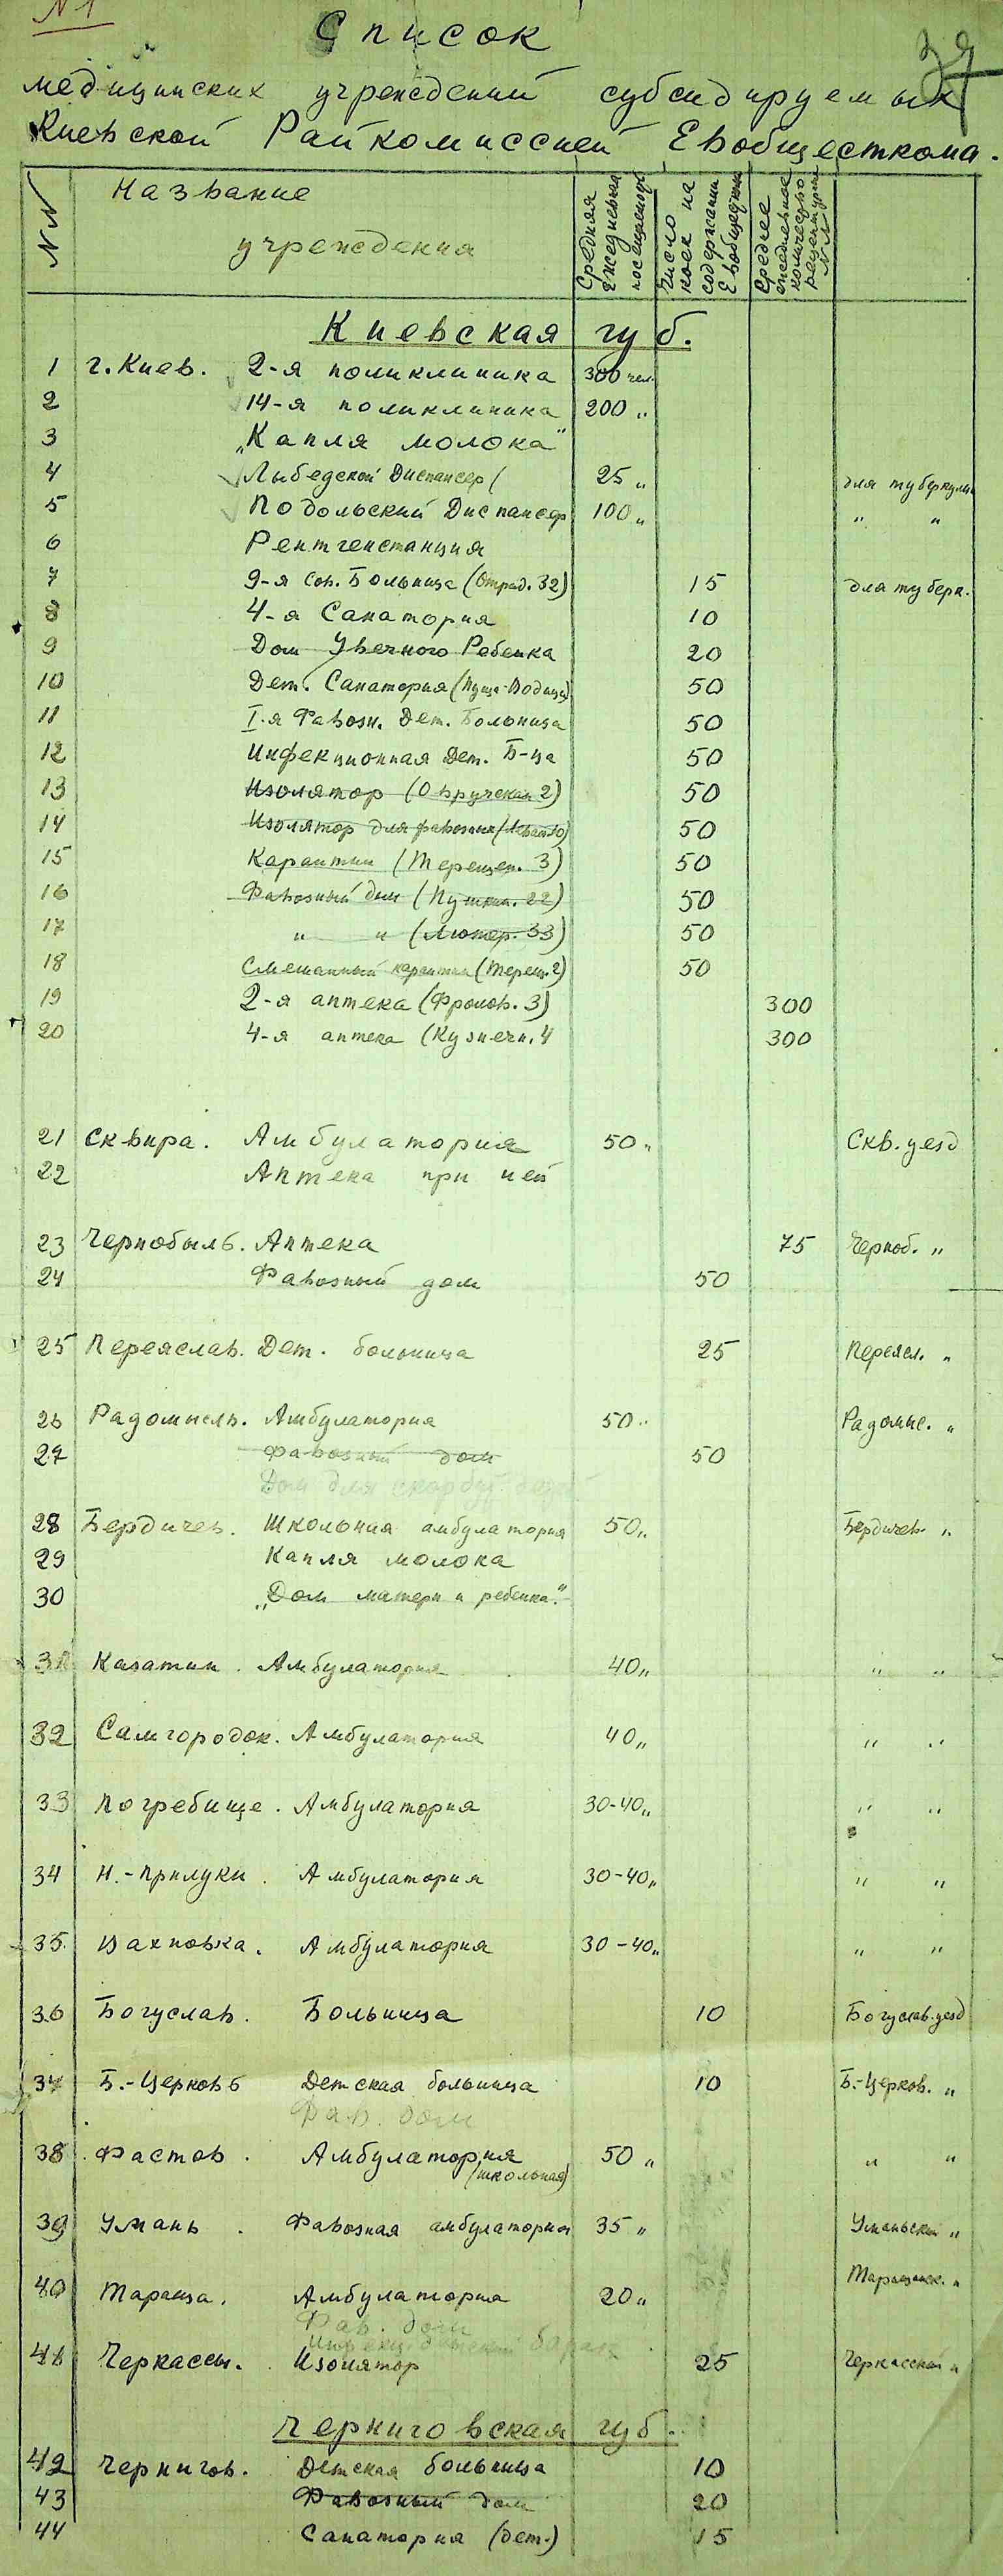 N 1
39
Список
медицинских учреждений субсидируемых
Киевской Райкомиссией Евобщесткома.
NN
Название учреждения
Средняя ежедневная посещаемость
Число коек на содержании Евобщесткома
Среднее ежедневное количество рецептурных NN
Киевская губ.
1 г. Киев. 2-я поликлиника 300 чел.
2 14-я поликлиника 200 „
3 „Капля молока"
4 Лыбедской Диспансер ( 25 „ для туберкулезн
5 Подольский Диспансер 100 „ „ „
6 Рентгенстанция
7 9-я Сов. Больница (Отрад. 32) 15 для туберк.
8 4-я Санатория 10
9 Дом Увечного Ребенка 20
10 Дет. Санатория (Пуща-Водица) 50
11 I-я Фавозн. Дет. Больница 50
12 Инфекционная Дет. Б-ца 50
13 Изолятор (Овручская 2) 50
14 Изолятор для фавозных 50
15 Карантин (Терещен. 3) 50
16 Фавозный дом (Пушкин. 22) 50
17 „ „ (Лютер. 33) 50
18 Смешанный карантин (Терещ. 2) 50
19 2-я аптека (Фролов. 3) 300
20 4-я аптека (Кузнечн. 4 300
21 Сквира. Амбулатория 50 „ Скв. уезд
22 Аптека при ней
23 Чернобыль. Аптека 75 Черноб. „
24 Фавозный дом 50
25 Переяслав. Дет. больница 25 Переясл. „
26 Радомысль. Амбулатория 50 „ Радомыс. „
27 Фавозный дом 50
Дом для скорбут.
28 Бердичев. Школьная амбулатория 50 „ Бердичев. „
29 Капля молока
30 „Дом матери и ребенка."
31 Казатин. Амбулатория 40 „ „ „
32 Самгородок. Амбулатория 40 „ „ „
33 Погребище. Амбулатория 30-40 „ „ „
34 Н.-Прилуки. Амбулатория 30-40 „ „ „
35 Вахновка. Амбулатория 30-40 „ „ „
36 Богуслав. Больница 10 Богуслав. уезд
37 Б.-Церковь Детская больница 10 Б.-Церков. „
Фав. дом
38 Фастов. Амбулатория 50 „ „ „
(школьная)
39 Умань. Фавозная амбулатория 35 „ Уманьский „
40 Тараща. Амбулатория 20 „ Таращанск. „
Фав. дом
барак
41 Черкассы. Изолятор 25 Черкасский „
Черниговская губ.
42 Чернигов. Детская больница 10
43 Фавозный дом 20
44 Санатория (дет.) 15